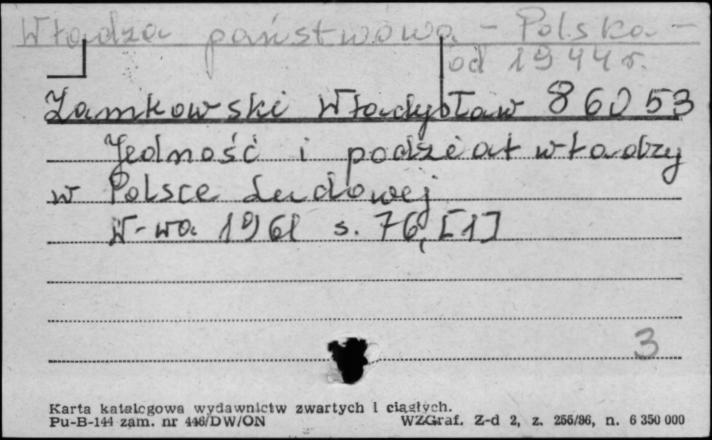 Władza państwowa - Polska -
od 1944 r.
Zamkowski Władysław 86053
Jedność i podział władzy
w Polsce Ludowej
W-wa 1961 s. 76, [1]
3
Karta katalogowa wydawnictw zwartych i ciągłych.
Pu-B-144 zam. nr 446/DW/ON WZGraf. Z-d 2, z. 256/86, n. 6 350 000